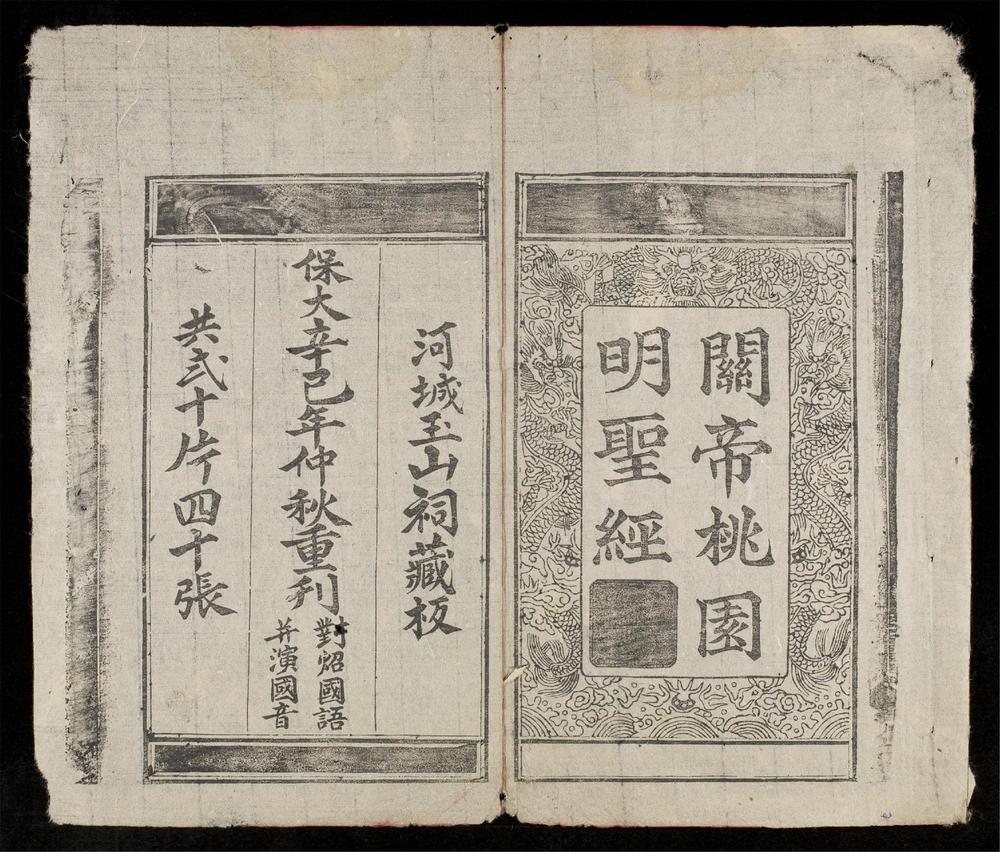 關帝桃園
明聖經
河城玉山祠藏板
保大辛巳年仲秋重刊
對炤國語
并演國音
共弍十片四十張